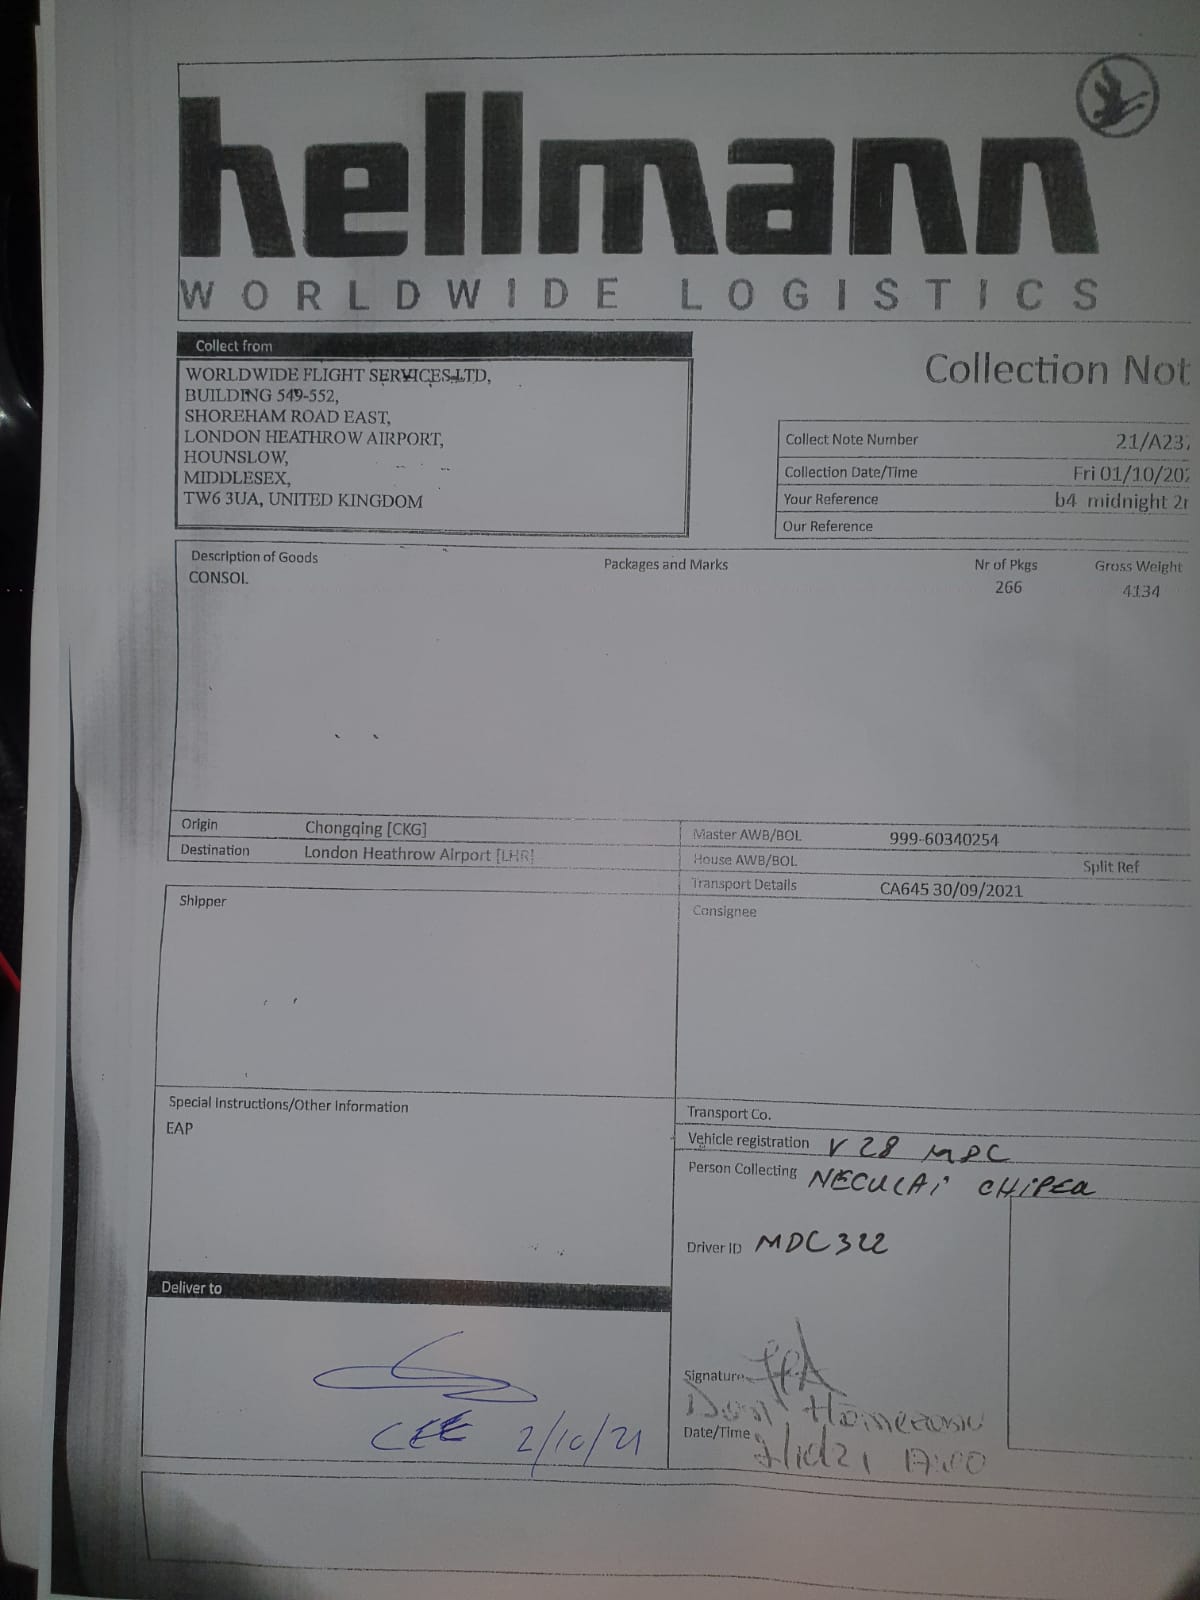 hellmann
WORLDWIDE LOGISTICS
Collect from
WORLDWIDE FLIGHT SERVICES LTD,
BUILDING 549-552,
SHOREHAM ROAD EAST,
LONDON HEATHROW AIRPORT,
HOUNSLOW,
MIDDLESEX,
TW6 3UA, UNITED KINGDOM
Collection Not
Collect Note Number 21/A237
Collection Date/Time Fri 01/10/202
Your Reference b4 midnight 2n
Our Reference
Description of Goods Packages and Marks Nr of Pkgs Gross Weight
CONSOL 266 4134
Origin Chongqing [CKG] Master AWB/BOL 999-60340254
Destination London Heathrow Airport [LHR] House AWB/BOL Split Ref
Transport Details CA645 30/09/2021
Shipper Consignee
Special Instructions/Other Information
EAP
Transport Co.
Vehicle registration V 28 MDC
Person Collecting NECULAI CHIPEA
Driver ID MDC322
Deliver to
Signature
Date/Time 2/10/21 17:00
CEE 2/10/21